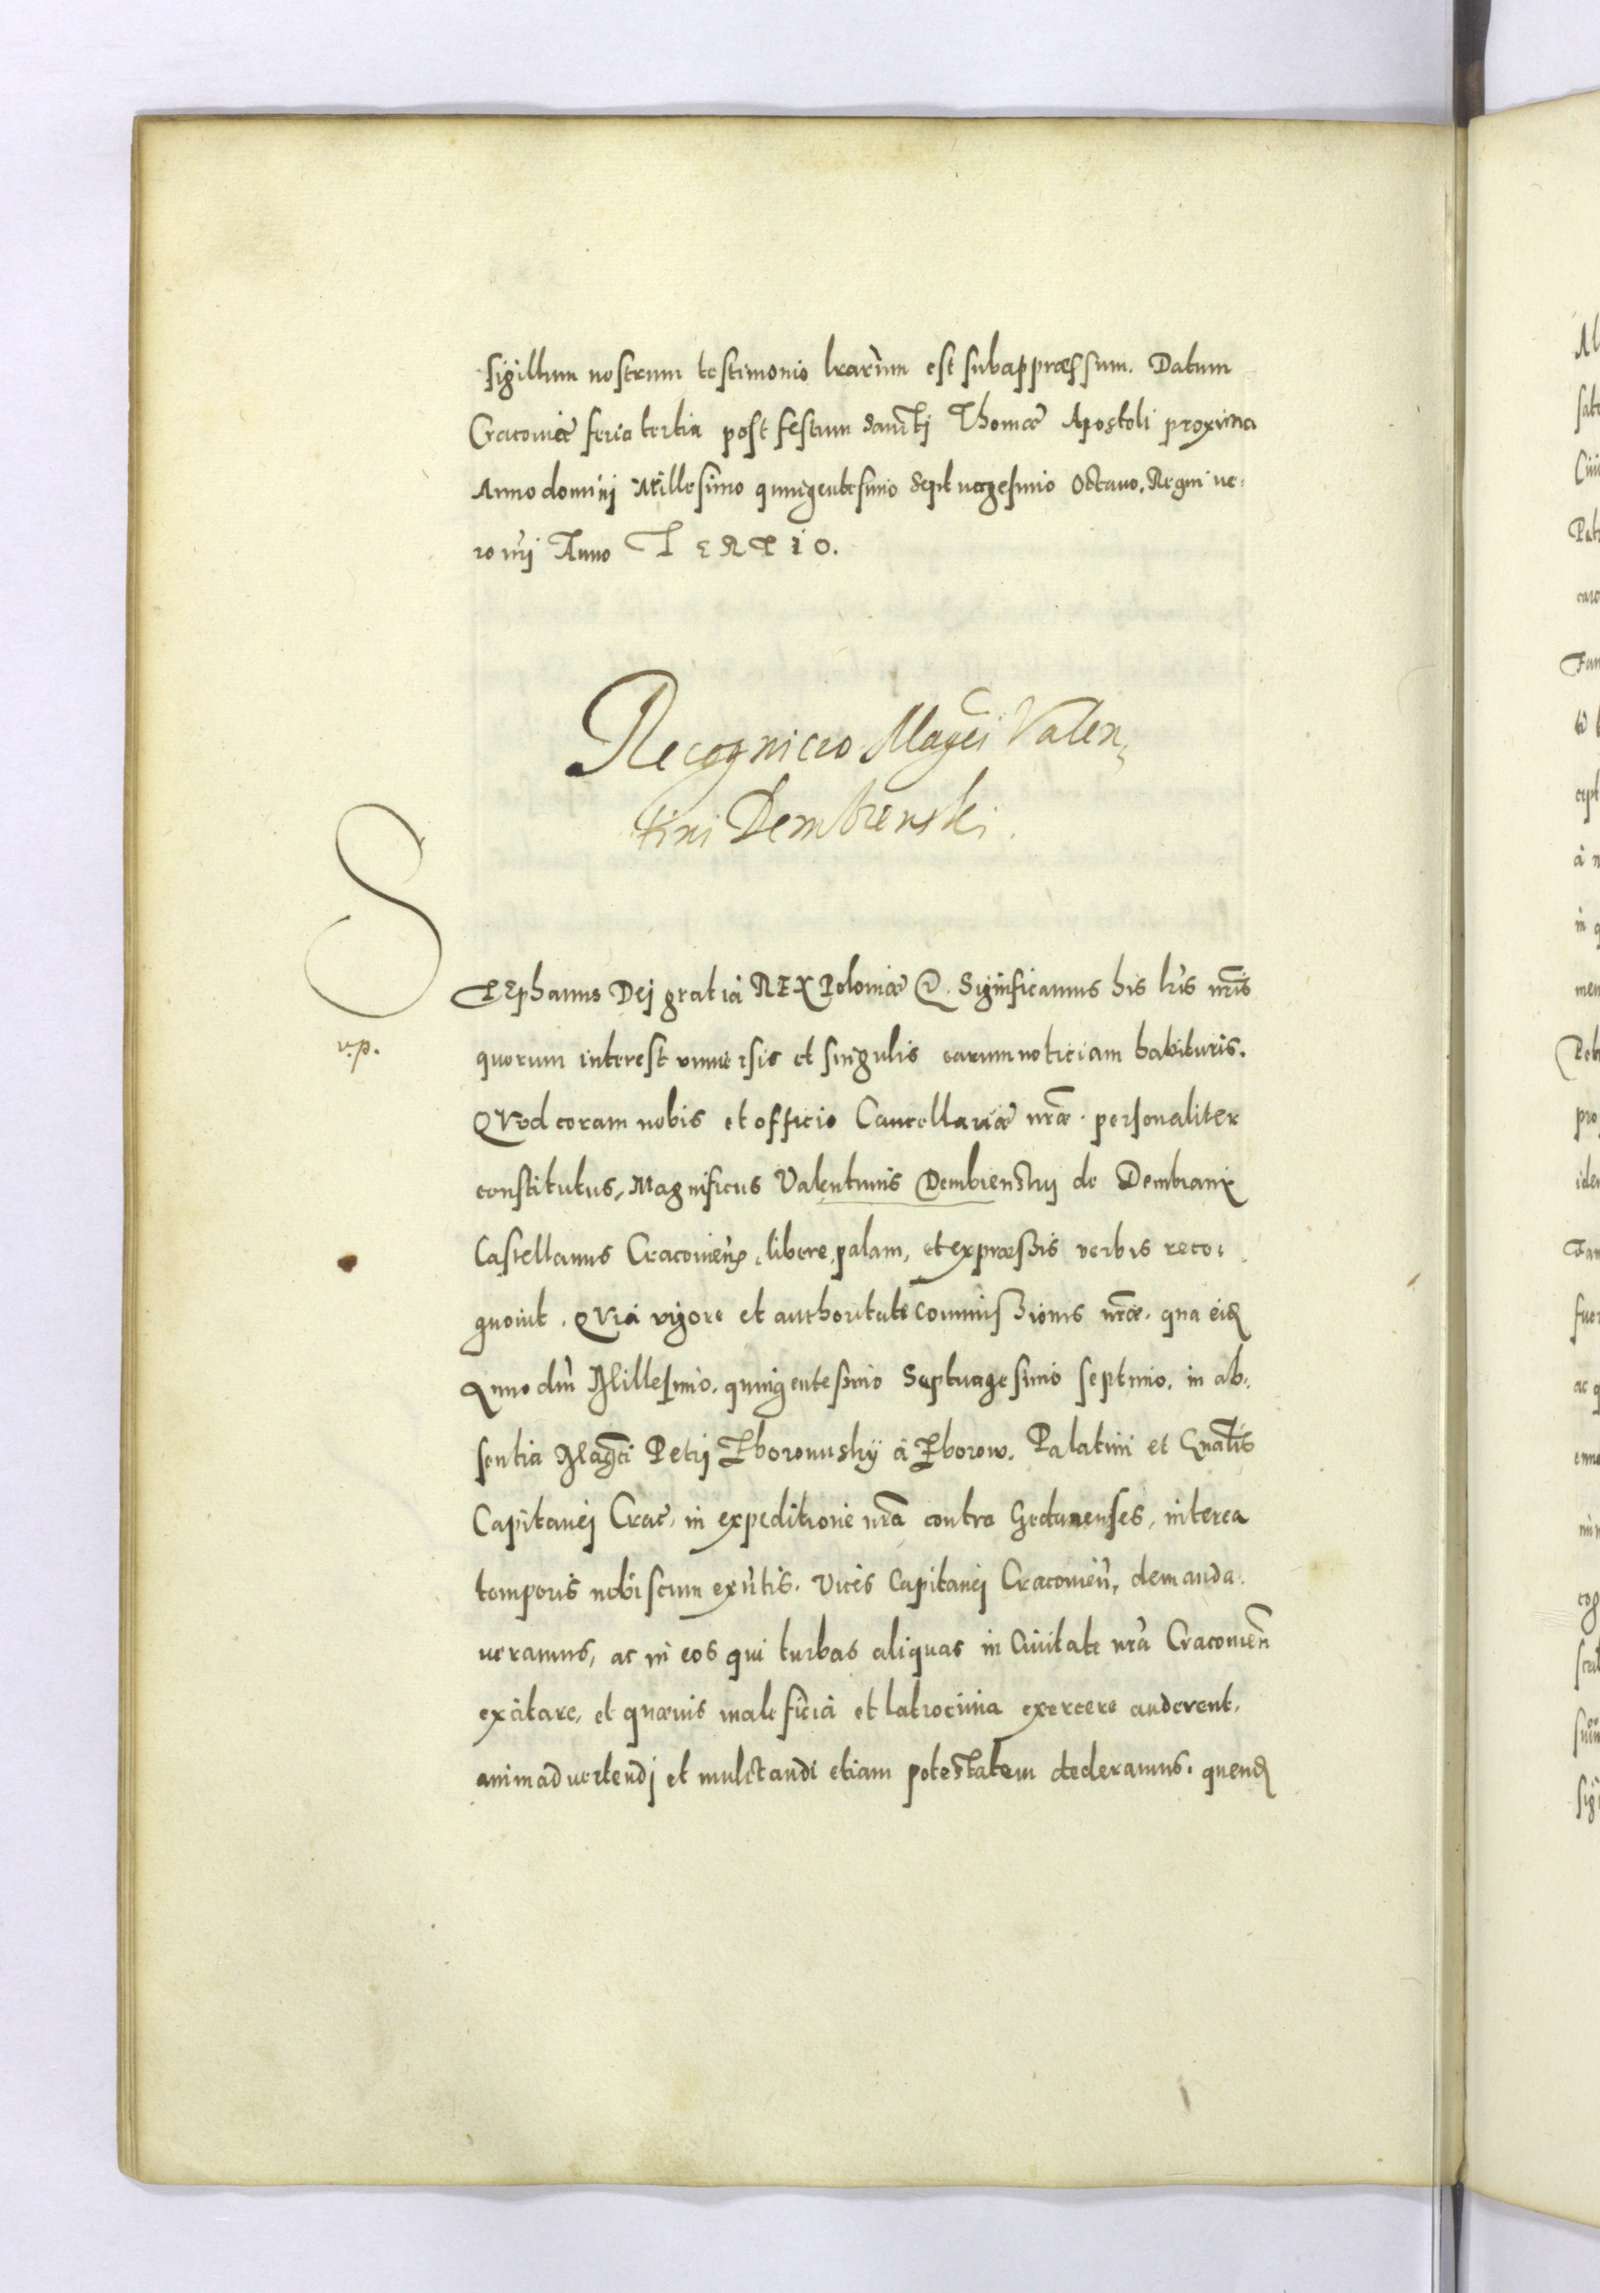 sigillum nostrum testimonio lrarum est subappræssum. Datum
Cracoviæ feria tertia post festum Sancti Thomæ Apostoli proxima
Anno dominij Millesimo quingentesimo Septuagesimo Octauo. Regni ve-
ro nri Anno TERTIO.
Recognicio Magci Valen,
tini Dembienski.
STEphanus Dej gratia REX Poloniæ &. Significamus his lris nris
v.p.
quorum interest vniuersis et singulis earum noticiam habituris.
QVod coram nobis et officio Cancellariæ nræ. personaliter
constitutus, Magnificus Valentinus Dembienskij de Dembiani
Castellanus Cracouien, libere, palam, et expræssis verbis reco-
gnouit. QVia vigore et authoritate commissionis nræ. qua eid
Anno dni Millesimo. quingentesimo Septuagesimo septimo. in ab-
sentia Magci Petrj Zborowskÿ à Zborow. Palatini et Gnalis
Capitanej Crac. in expeditione nra contra Gedanenses, interea
temporis nobiscum exntis. vices Capitanej Cracouien, demanda-
ueramus, ac in eos qui turbas aliquas in Ciuitate nra Cracouien
excitare, et quævis maleficia et latrocinia exercere auderent,
animaduertendj et mulctandi etiam potestatem dederamus. quend